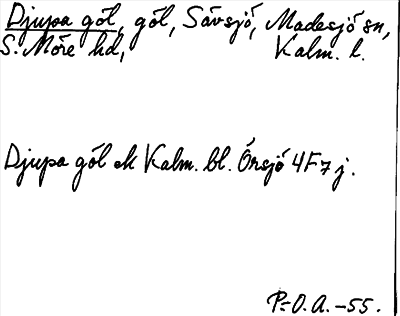 Djupa göl, göl, Sävsjö, Madesjö sn,
S. Möre hd, Kalm. l.
Djupa göl ek Kalm. bl. Örsjö 4F7j.
P-O.A. -55.